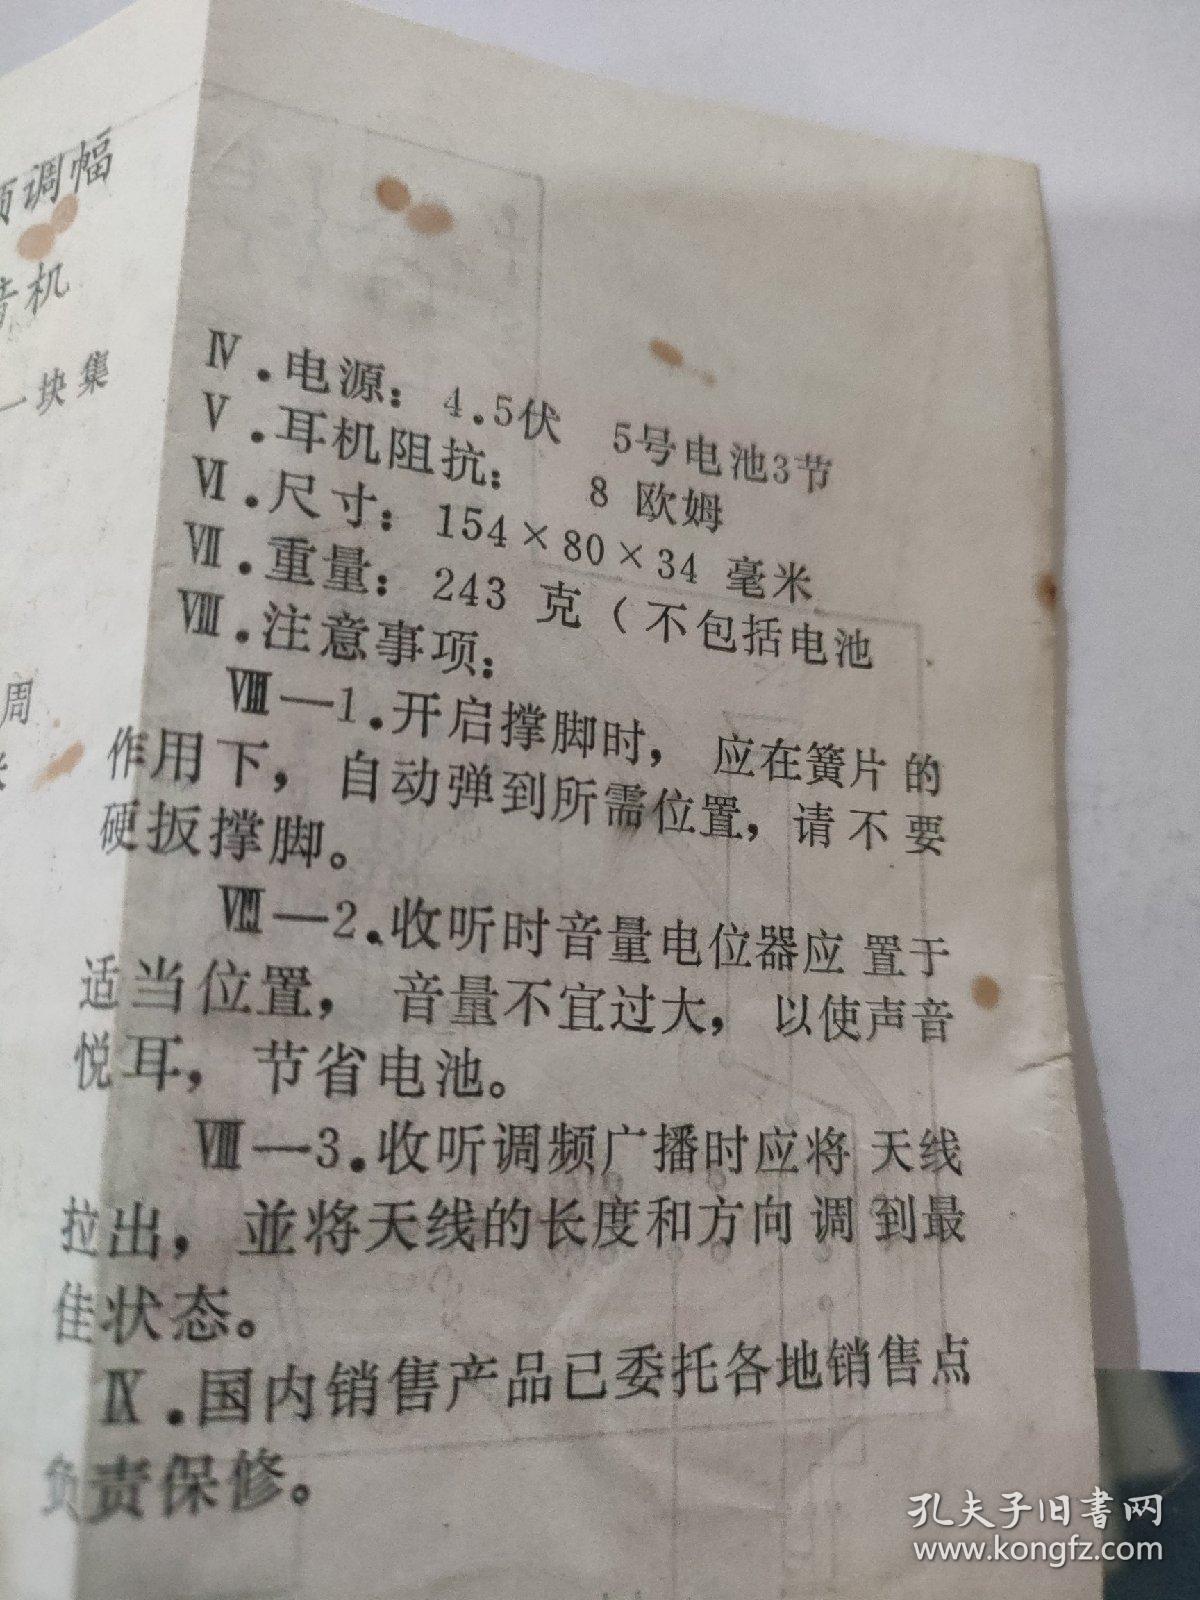 调幅
机
一块集
周
Ⅳ.电源: 4.5伏 5号电池3节
Ⅴ.耳机阻抗: 8 欧姆
Ⅵ.尺寸: 154×80×34 毫米
Ⅶ.重量: 243 克(不包括电池
Ⅷ.注意事项:
Ⅷ—1.开启撑脚时, 应在簧片的
作用下, 自动弹到所需位置,请不要
硬扳撑脚。
Ⅷ—2.收听时音量电位器应置于
适当位置, 音量不宜过大, 以使声音
悦耳, 节省电池。
Ⅷ—3.收听调频广播时应将天线
拉出, 並将天线的长度和方向调到最
佳状态。
Ⅸ.国内销售产品已委托各地销售点
负责保修。
孔夫子旧书网
www.kongfz.com